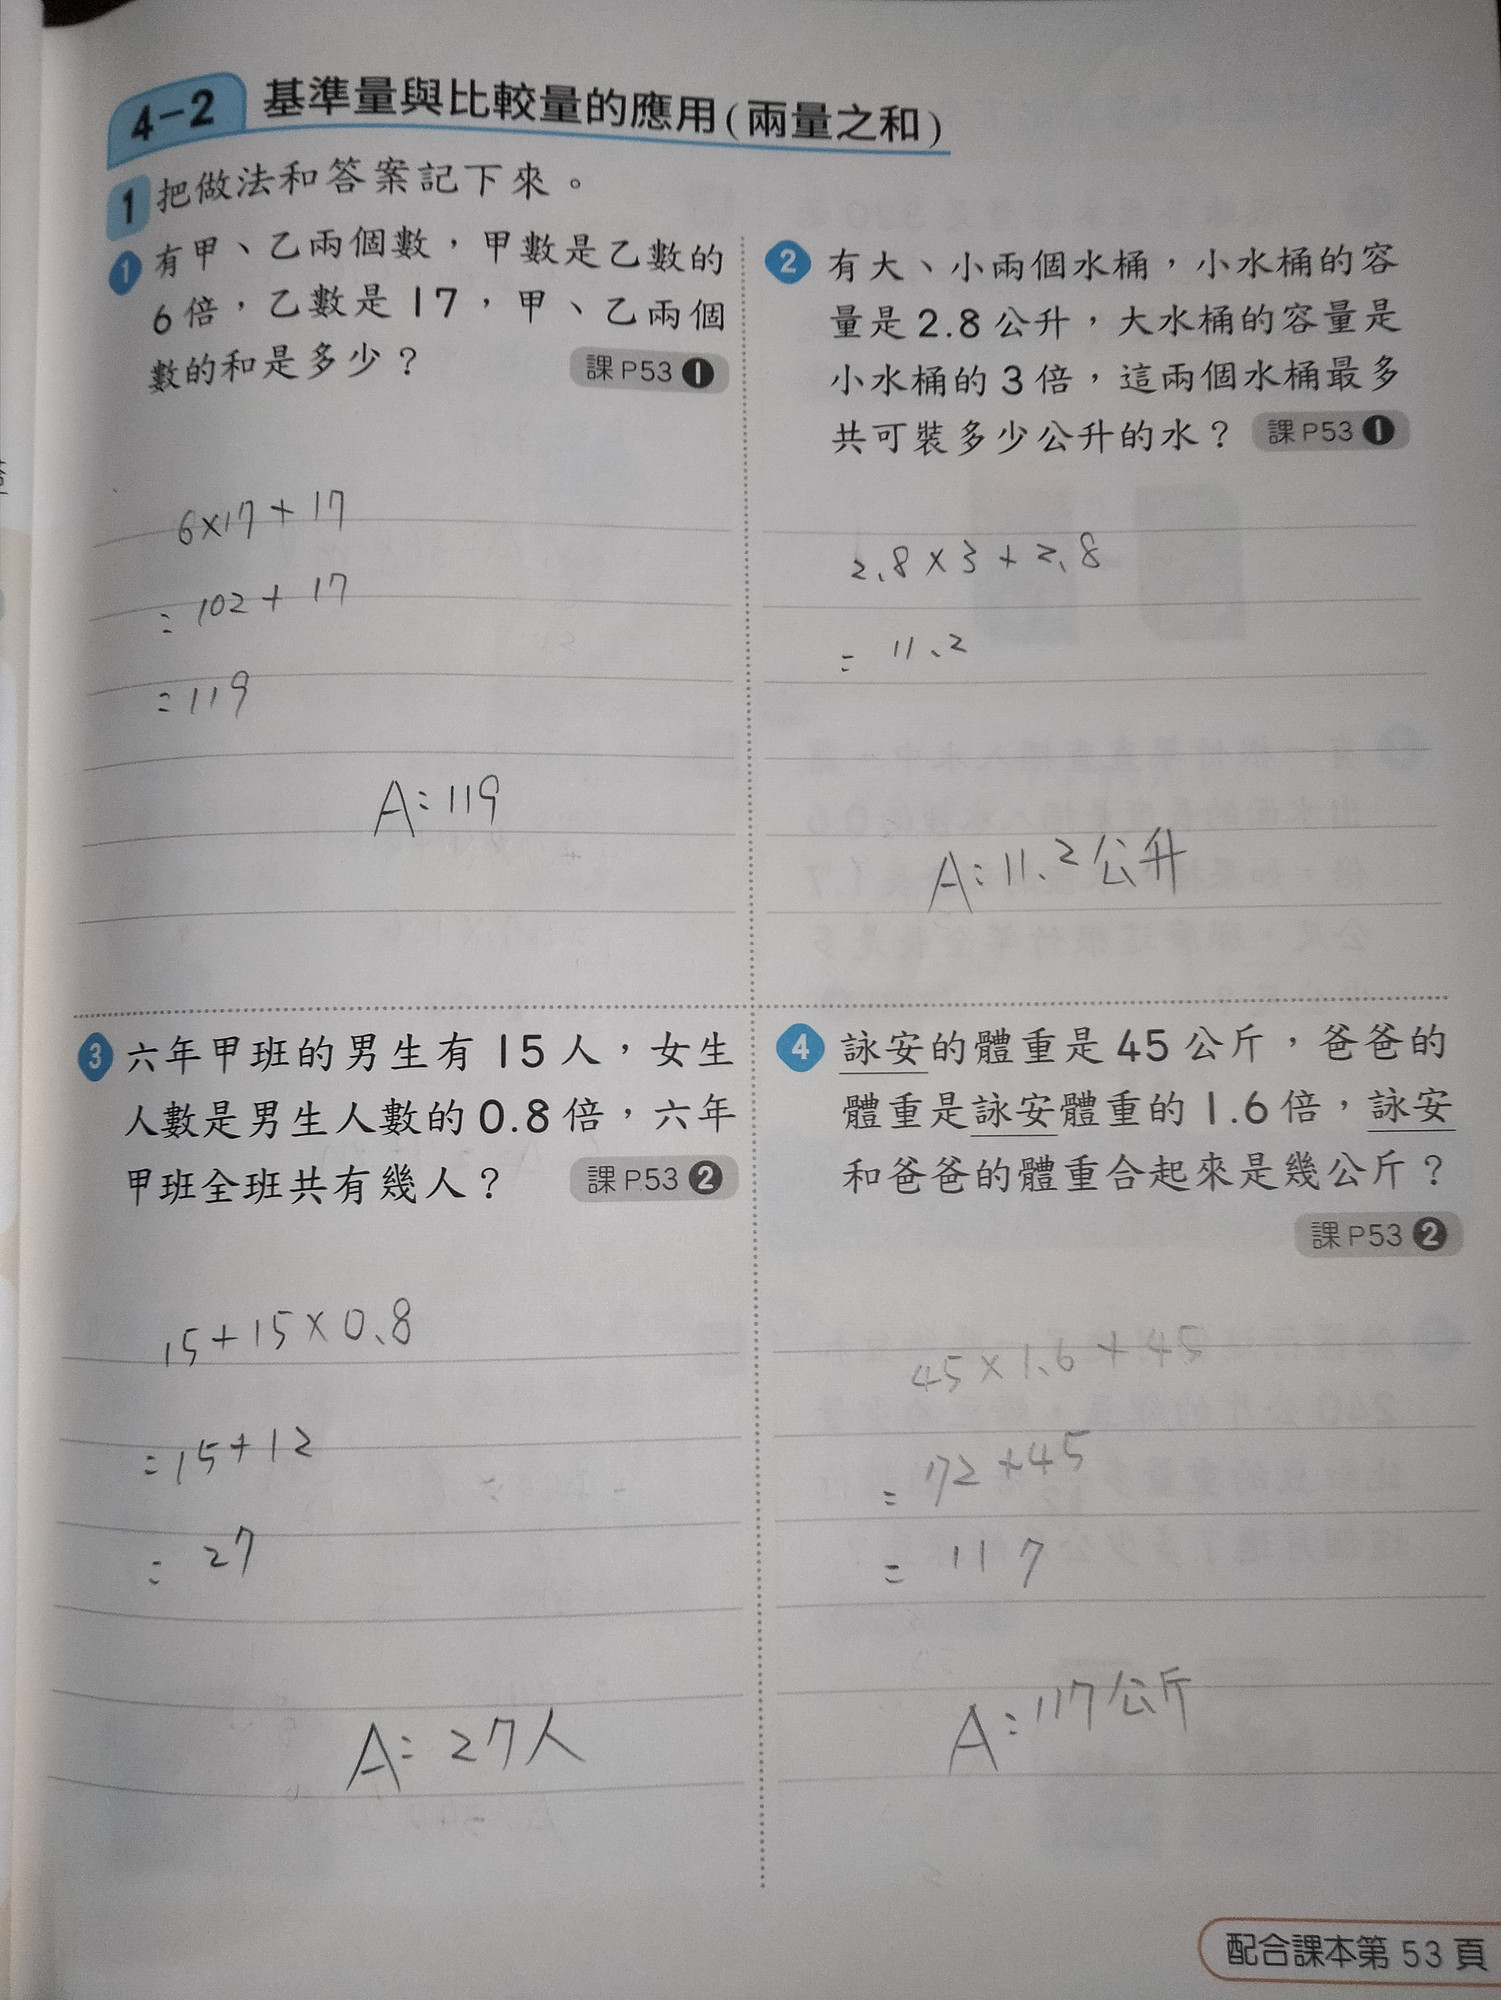 4-2 基準量與比較量的應用(兩量之和)
1 把做法和答案記下來。
1 有甲、乙兩個數，甲數是乙數的
6倍，乙數是17，甲、乙兩個
數的和是多少？ 課P53 1
6×17+17
=102+17
=119
A:119
2 有大、小兩個水桶，小水桶的容
量是2.8公升，大水桶的容量是
小水桶的3倍，這兩個水桶最多
共可裝多少公升的水？ 課P53 1
2.8×3+2.8
=11.2
A:11.2公升
3 六年甲班的男生有15人，女生
人數是男生人數的0.8倍，六年
甲班全班共有幾人？ 課P53 2
15+15×0.8
=15+12
=27
A:27人
4 詠安的體重是45公斤，爸爸的
體重是詠安體重的1.6倍，詠安
和爸爸的體重合起來是幾公斤？
課P53 2
45×1.6+45
=72+45
=117
A:117公斤
配合課本第53頁